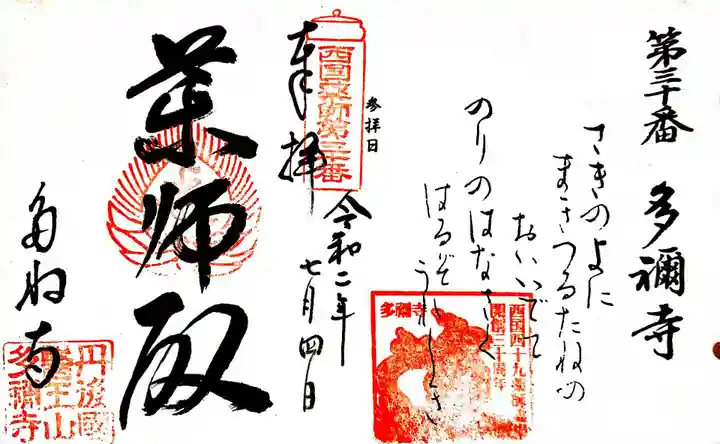 第三十番 多禰寺
さきのよに
まきつるたねの
おいいでて
のりのはなさく
はるぞうれしき
参拝日
令和二年
七月四日
西国薬師第三十番
奉拝
薬師殿
多祢寺
多禰寺
西国四十九薬師霊場
開創三十周年
丹後國
醫王山
多禰寺